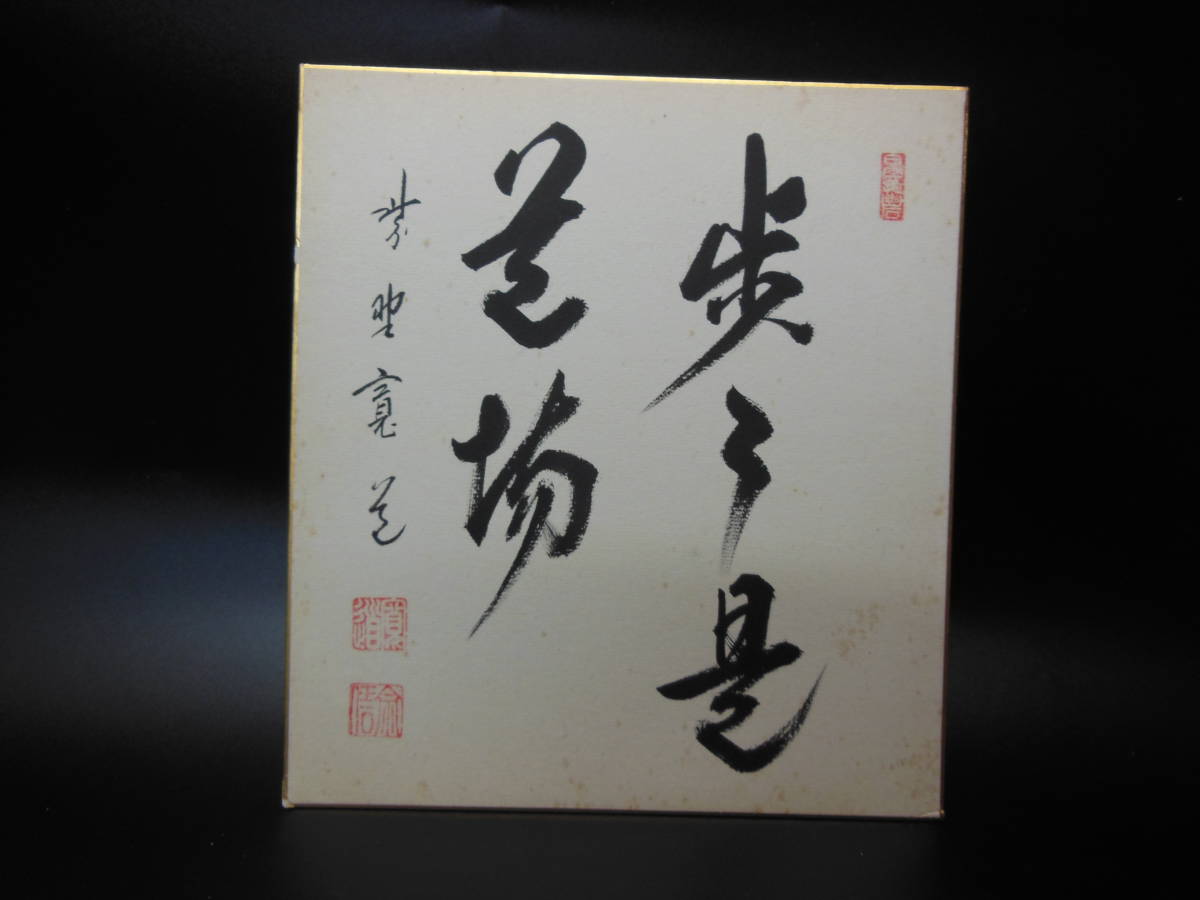 歩々是
道場
紫野寛道
寛道